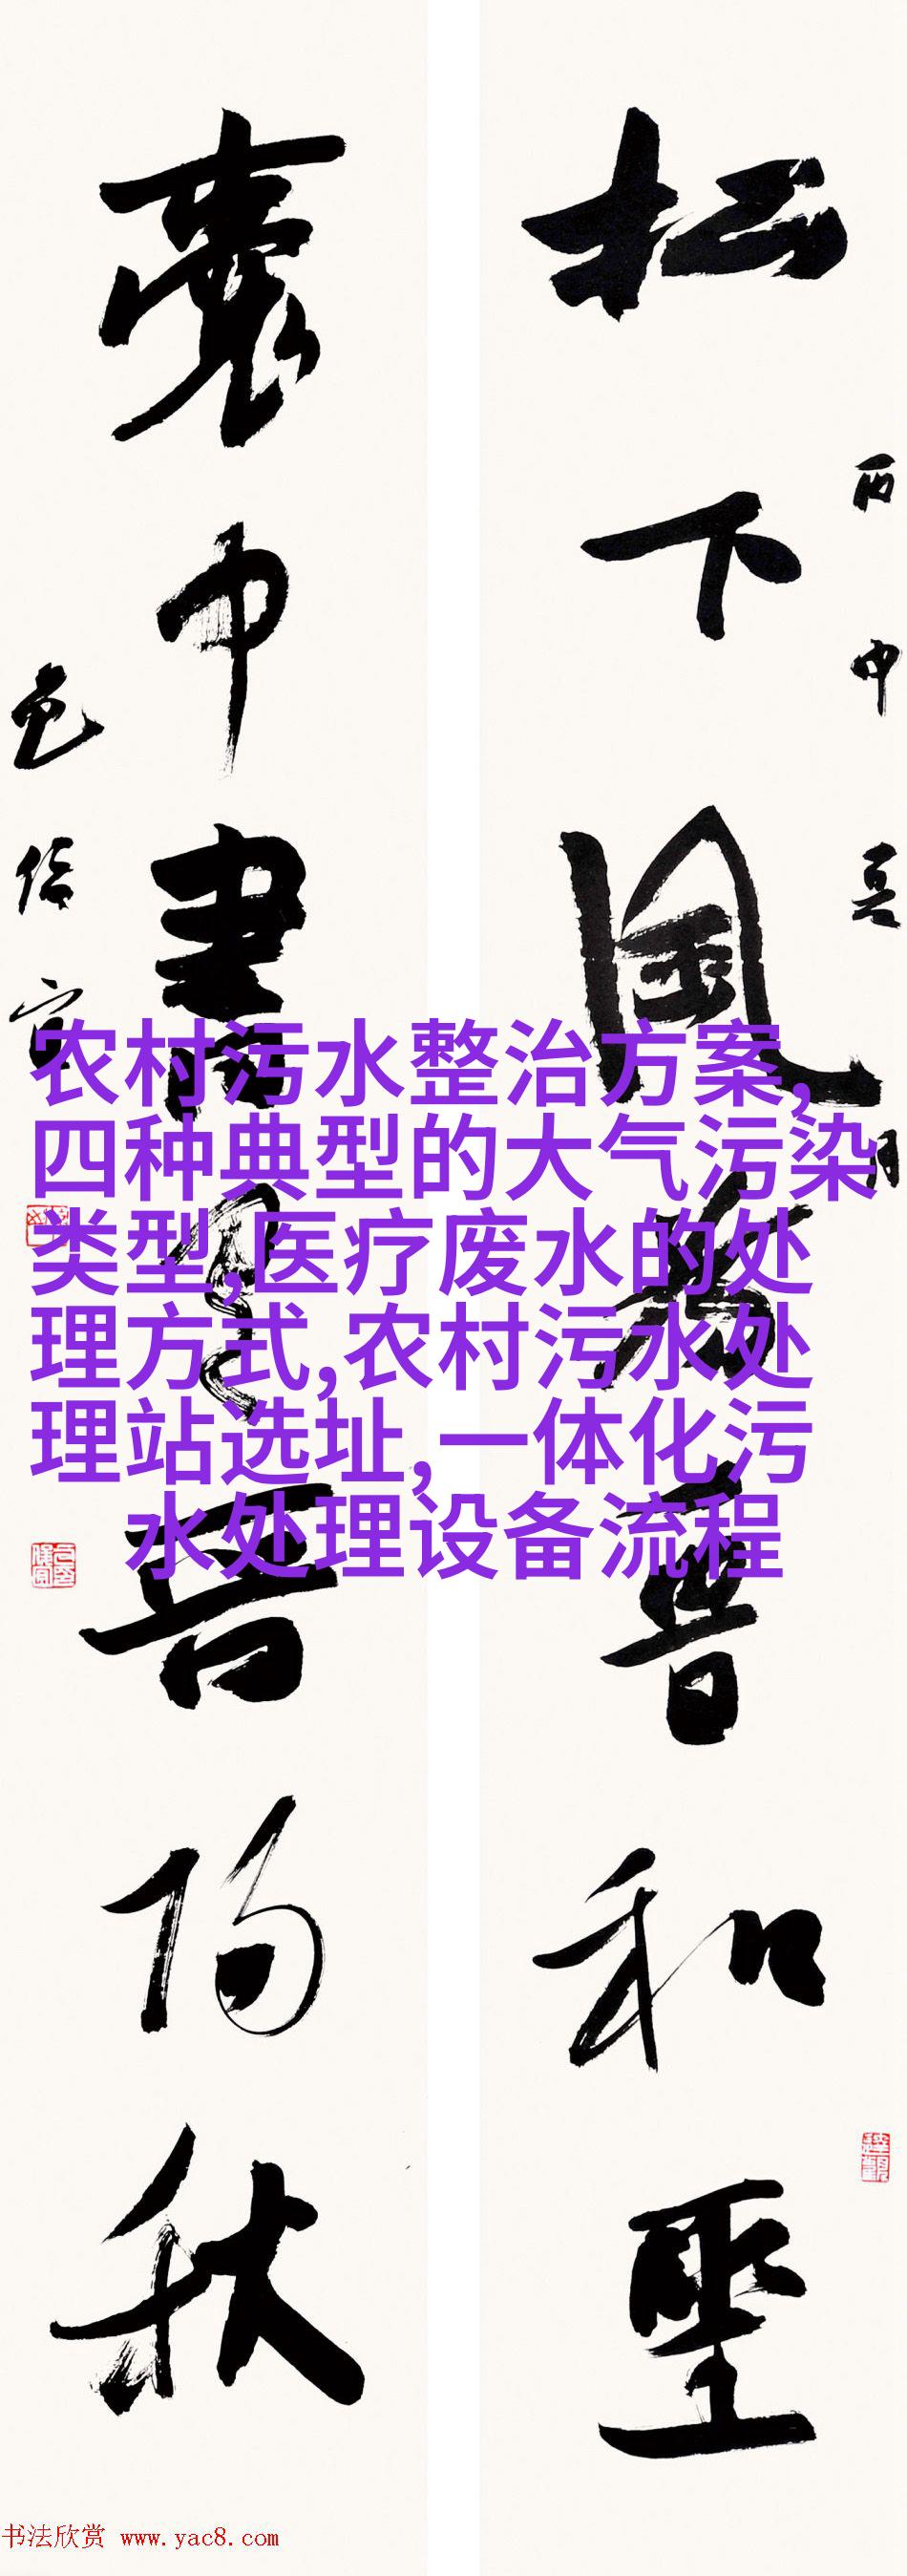 松下風為和聖
丙申夏月
囊中書是晉陽秋
信
农村污水整治方案,
四种典型的大气污染
类型,医疗废水的处
理方式,农村污水处
理站选址,一体化污
水处理设备流程
书法欣赏 www.yac8.com